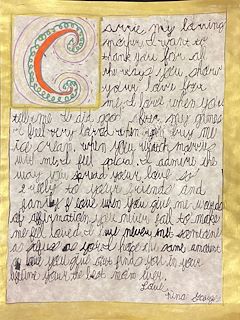 C arrie my loving
mom, I want to
thank you for all
the ways you show
your love for
me. I love when you
tell me I did good after my games
I feel very loved when you buy me
ice cream. when you watch movies
with me I feel I admire the
way you spread your love so
to your friends and
family I love when you give me words
of affirmation you never fail to make
me feel loved I have never met someone
as as you I hope the same amount
of love you give out finds you in your
lifetime your the best mom ever.
Love,
Nina